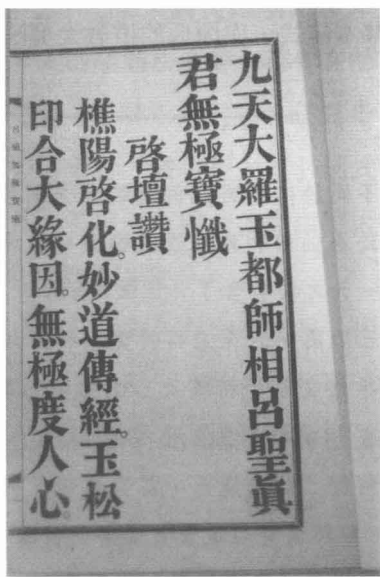 九天大羅玉都師相呂聖眞
君無極寶懺
啓壇讚
樵陽啓化。妙道傳經。玉松
印合大緣因。無極度人心。